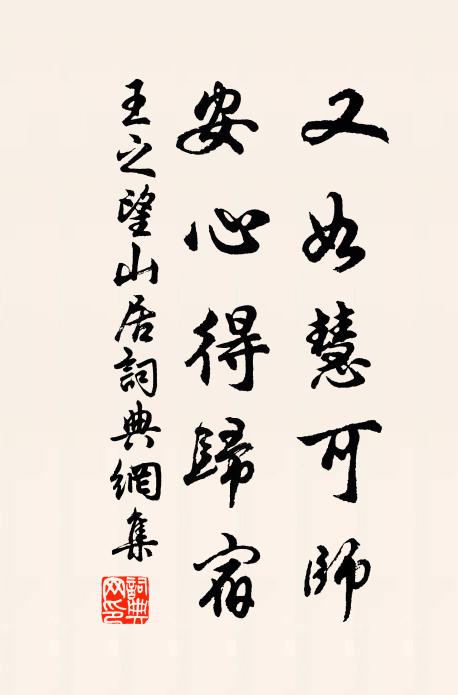 又如慧可師
安心得歸宿
王之望山居詞典網集
詞典网印